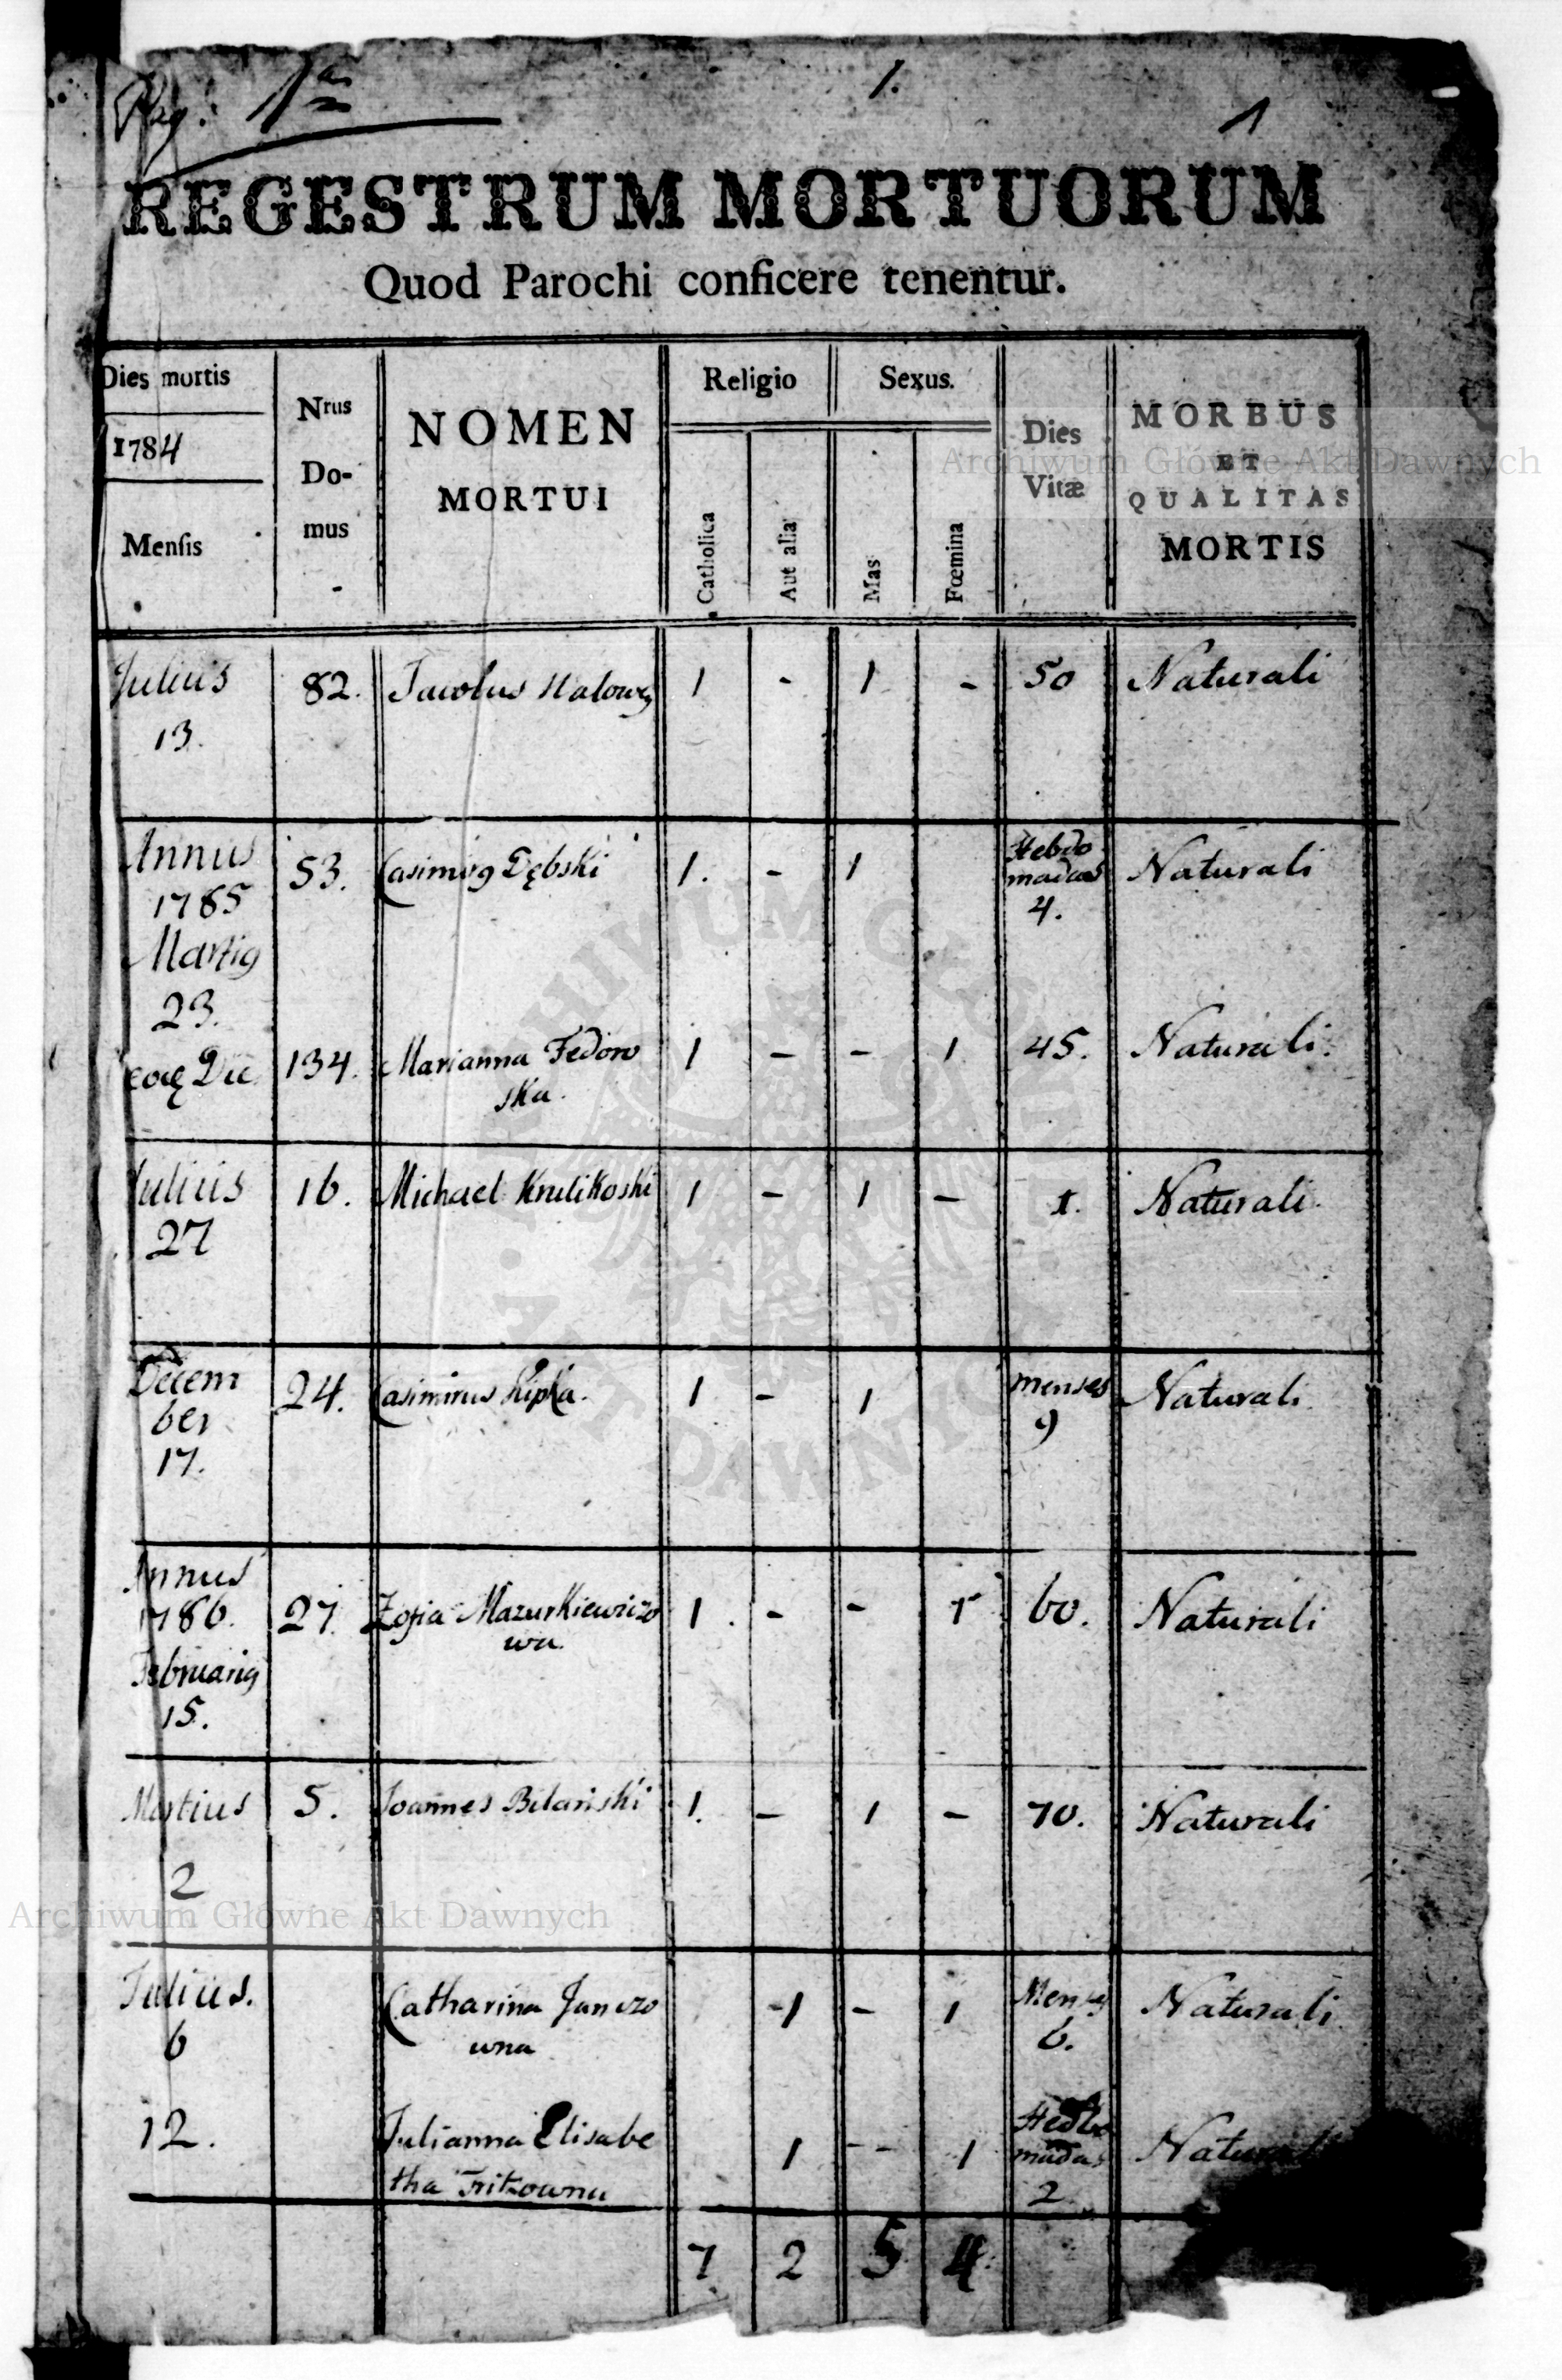 Pag: 1ma
1.
1
REGESTRUM MORTUORUM
Quod Parochi conficere tenentur.
Dies mortis
1784
Mensis
Nrus
Do-
mus
NOMEN
MORTUI
Religio
Catholica
Aut alia
Sexus.
Mas
Fœmina
Dies
Vitæ
MORBUS
ET
QUALITAS
MORTIS
Julius 82. 1 - 1 - 50 Naturali
13.
Annus 53. Casimirus Dębski 1. - 1 Hebdo Naturali
1785 madas
Martius 4.
23.
Die 134. Marianna Fedoro 1 - - 1 45. Naturali.
ska.
Julius 16. Michael Krulikoski 1 - 1 - 1. Naturali.
27
Decem 24. Casimirus Kipka. 1 - 1 menses Naturali.
ber 9
17.
Annus
1786. 27. Zofia Mazurkiewiczo 1. - - 1 60. Naturali
wa.
Februarius
15.
Martius 5. Joannes Bilański 1. - 1 - 70. Naturali
2
Julius. Catharina Janczo -1 - 1 Menses Naturali
6 wna 6.
12. Julianna Elisabe 1 -- 1 Hebdo Naturali
tha Fritzowna madas
2
7 2 5 4
Archiwum Główne Akt Dawnych
ARCHIWUM GŁÓWNE
AKT DAWNYCH
Archiwum Główne Akt Dawnych